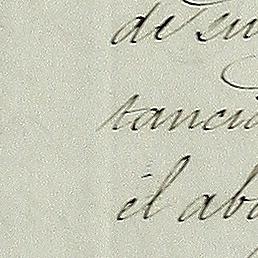 de su
tanci
él abo